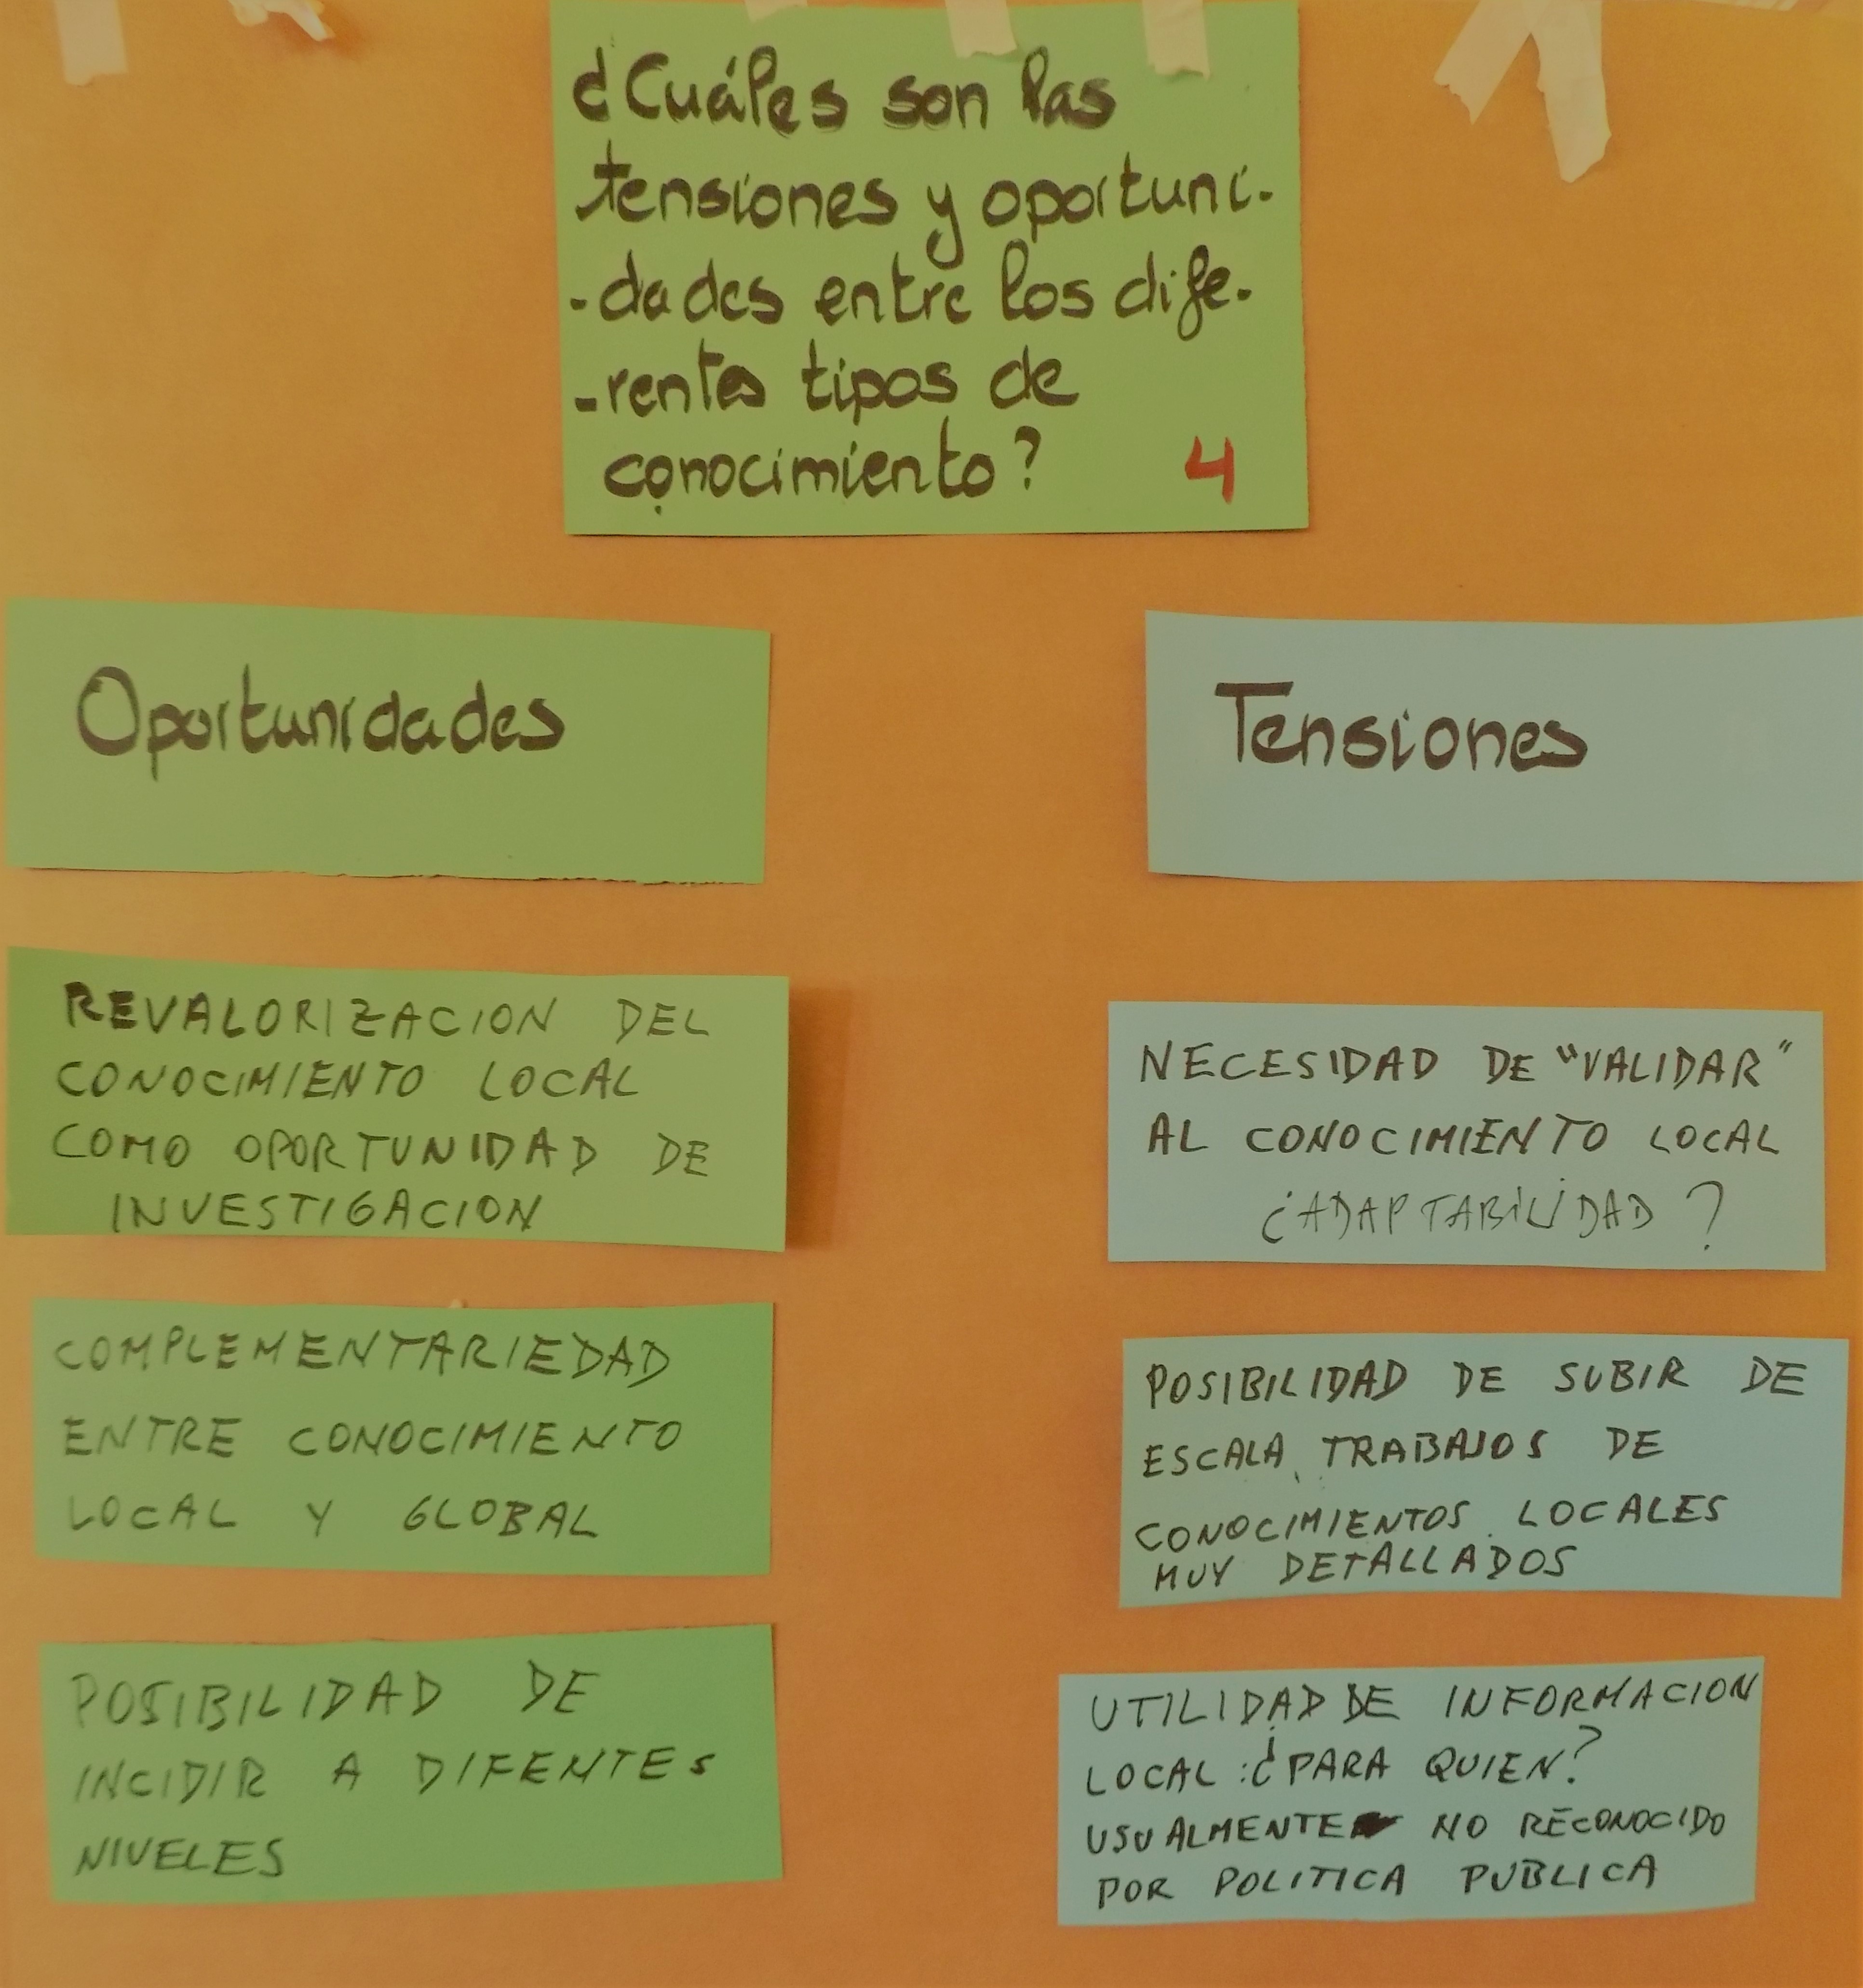 ¿Cuáles son las
tensiones y oportuni-
-dades entre los dife-
-rentes tipos de
conocimiento? 4
Oportunidades
REVALORIZACION DEL
CONOCIMIENTO LOCAL
COMO OPORTUNIDAD DE
INVESTIGACION
COMPLEMENTARIEDAD
ENTRE CONOCIMIENTO
LOCAL Y GLOBAL
POSIBILIDAD DE
INCIDIR A DIFENTES
NIVELES
Tensiones
NECESIDAD DE "VALIDAR"
AL CONOCIMIENTO LOCAL
¿ADAPTABILIDAD?
POSIBILIDAD DE SUBIR DE
ESCALA TRABAJOS DE
CONOCIMIENTOS LOCALES
MUY DETALLADOS
UTILIDAD DE INFORMACION
LOCAL: ¿PARA QUIEN?
USUALMENTE NO RECONOCIDO
POR POLITICA PUBLICA